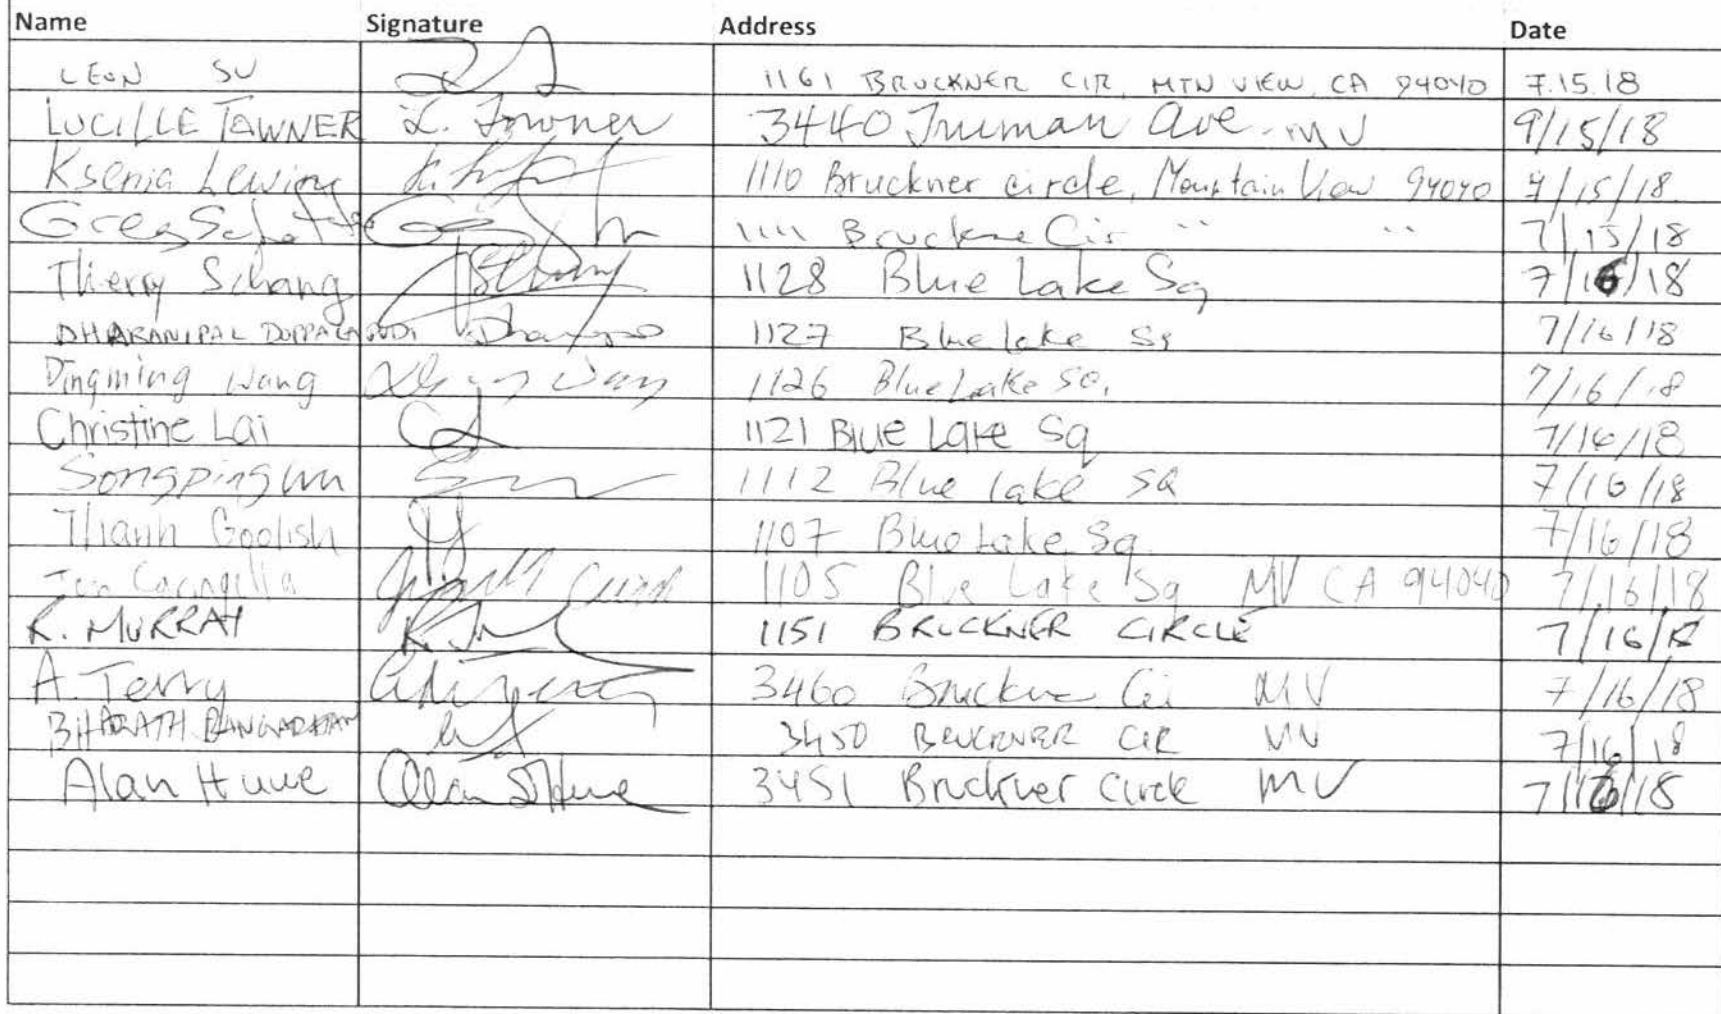 Name Signature Address Date
LEON SU 1161 BRUCKNER CIR, MTN VIEW, CA 94040 7.15.18
LUCILLE TOWNER L. Towner 3440 Truman Ave. MV 9/15/18
Ksenia 1110 Bruckner circle, Mountain View 94040 7/15/18
Greg 1111 Cir " " 7/15/18
Thierry Schang 1128 Blue Lake Sq 7/16/18
DHARANIPAL 1127 Blue lake Sq 7/16/18
Dingming Wang 1126 Blue Lake SQ. 7/16/18
Christine Lai 1121 Blue Lake Sq 7/16/18
Songping Wu 1112 Blue lake SQ 7/16/18
Thanh Goolish 1107 Blue Lake Sq 7/16/18
1105 Blue Lake Sq MV CA 94040 7/16/18
R. MURRAY 1151 BRUCKNER CIRCLE 7/16/18
A. Terry 3460 MV 7/16/18
BHARATH 3450 BRUCKNER CIR MV 7/16/18
Alan Huwe Alan Huwe 3451 Bruckner Circle MV 7/16/18